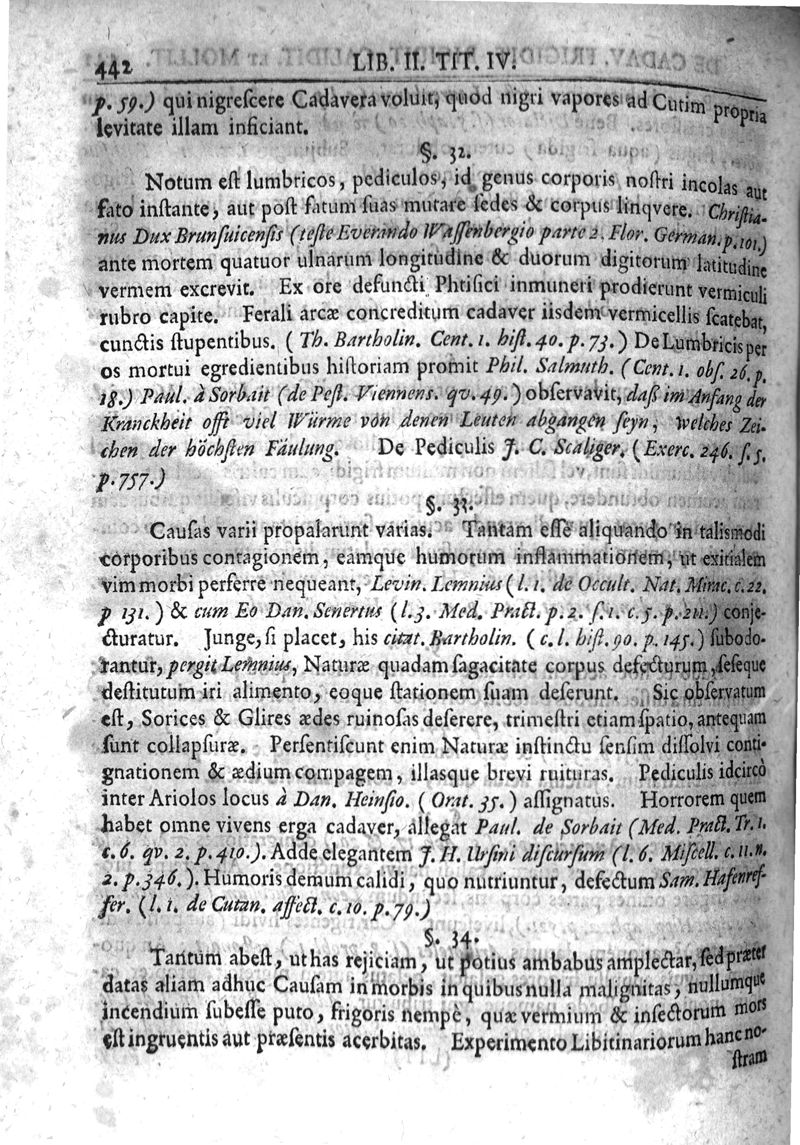 442 LIB. II. TIT. IV.
p. 59.) qui nigreſcere Cadavera voluit, quod nigri vapores ad Cutim propria
levitate illam inficiant.
§. 32.
Notum eſt lumbricos, pediculos, id genus corporis noſtri incolas aut
fato inſtante, aut poſt fatum ſuas mutare ſedes & corpus linqvere. Chriſtia-
nus Dux Brunſuicenſis (teſte Everando Waſſenbergio parte 2. Flor. German. p. 101.)
ante mortem quatuor ulnarum longitudine & duorum digitorum latitudine
vermem excrevit. Ex ore defuncti Phtiſici inmuneri prodierunt vermiculi
rubro capite. Ferali arcæ concreditum cadaver iisdem vermicellis ſcatebat,
cunctis ſtupentibus. (Th. Bartholin. Cent. 1. hiſt. 40. p. 73.) De Lumbricis per
os mortui egredientibus hiſtoriam promit Phil. Salmuth. (Cent. 1. obſ. 26. p.
18.) Paul. à Sorbait (de Peſt. Viennens. qv. 49.) obſervavit, daß im Anfang der
Kranckheit offt viel Würme von denen Leuten abgangen ſeyn, welches Zei-
chen der höchſten Fäulung. De Pediculis J. C. Scaliger. (Exerc. 246. ſ. 5.
p. 757.)
§. 33.
Cauſas varii propalarunt varias. Tantam eſſe aliquando in talismodi
corporibus contagionem, eamque humorum inflammationem, ut exitialem
vim morbi perferre nequeant, Levin. Lemnius (l. 1. de Occult. Nat. Mirac. c. 22.
p 131.) & cum Eo Dan. Senertus (l. 3. Med. Pract. p. 2. ſ. 1. c. 5. p. 211.) conje-
cturatur. Junge, ſi placet, his citat. Bartholin. (c. l. hiſt. 90. p. 145.) ſubodo-
rantur, pergit Lemnius, Naturæ quadam ſagacitate corpus defecturum, ſeſeque
deſtitutum iri alimento, eoque ſtationem ſuam deſerunt. Sic obſervatum
eſt, Sorices & Glires ædes ruinoſas deſerere, trimeſtri etiam ſpatio, antequam
ſunt collapſuræ. Perſentiſcunt enim Naturæ inſtinctu ſenſim diſſolvi conti-
gnationem & ædium compagem, illasque brevi ruituras. Pediculis idcircò
inter Ariolos locus à Dan. Heinſio. (Orat. 35.) aſſignatus. Horrorem quem
habet omne vivens erga cadaver, allegat Paul. de Sorbait (Med. Pract. Tr. 1.
c. 6. qv. 2. p. 410.). Adde elegantem J. H. Urſini diſcurſum (l. 6. Miſcell. c. 11. n.
2. p. 346.). Humoris demum calidi, quo nutriuntur, defectum Sam. Hafenref-
fer. (l. 1. de Cutan. affect. c. 10. p. 79.)
§. 34.
Tantum abeſt, ut has rejiciam, ut potius ambabus amplectar, ſed præter
datas aliam adhuc Cauſam in morbis in quibus nulla malignitas, nullumque
incendium ſubeſſe puto, frigoris nempè, quæ vermium & inſectorum mors
eſt ingruentis aut præſentis acerbitas. Experimento Libitinariorum hanc no-
ſtram